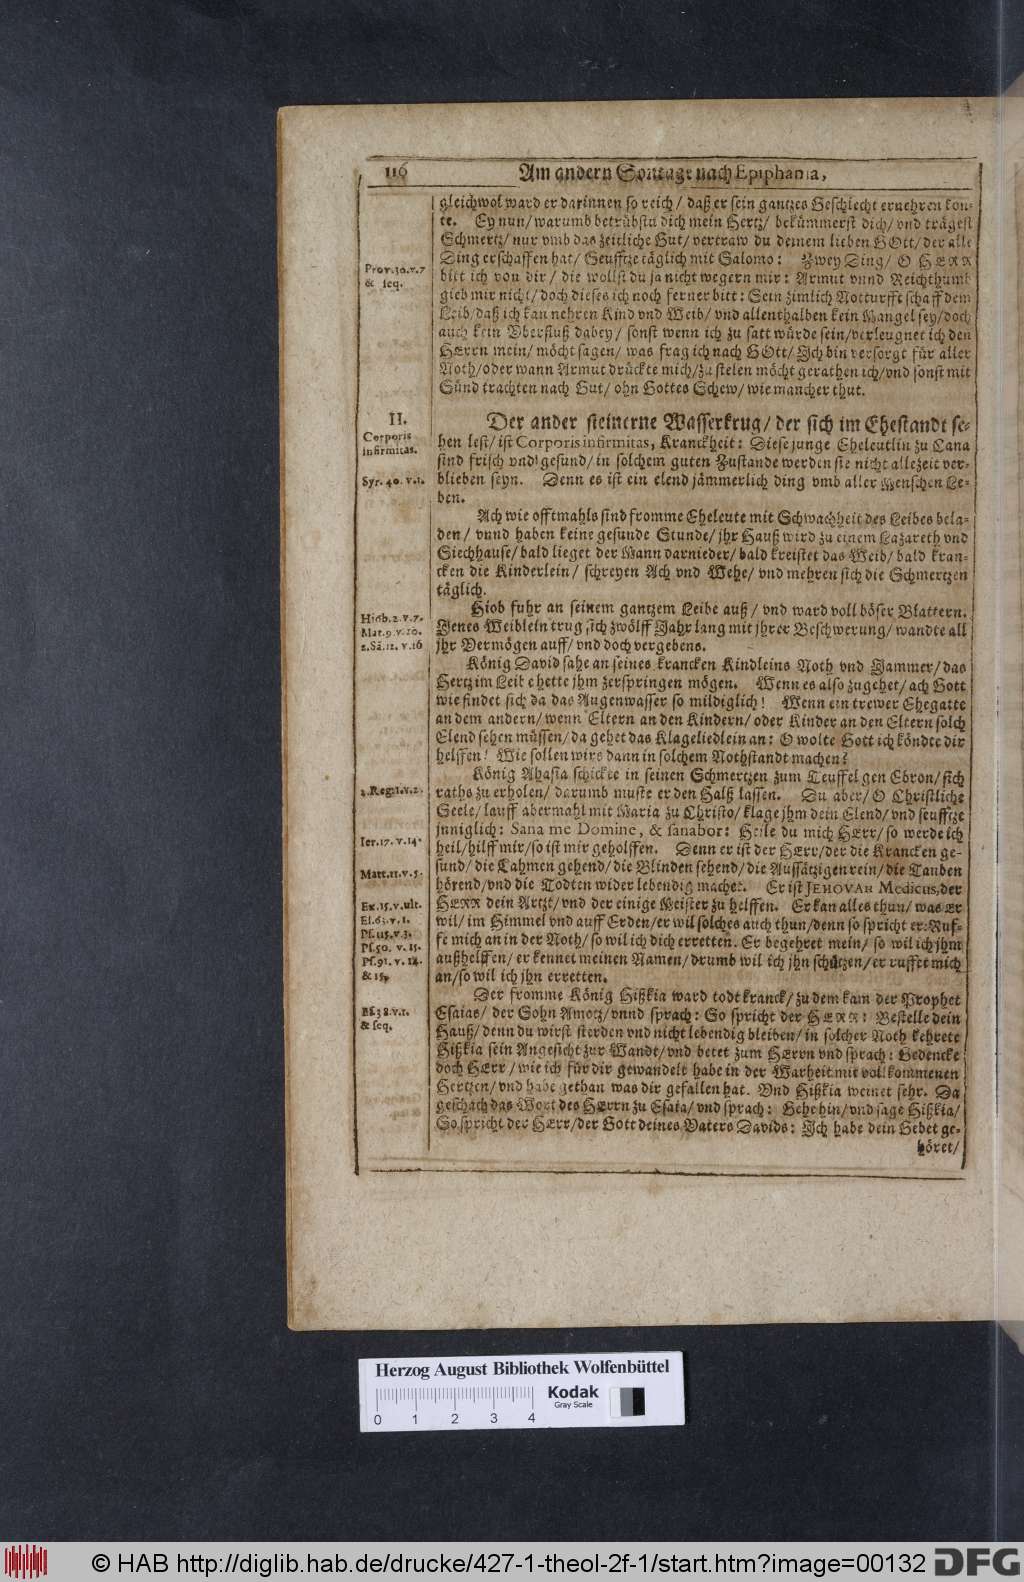 116
Am andern Sontage nach Epiphania,
gleichwol ward er darinnen so reich / daß er sein gantzes Geschlecht ernehren kön-
te. Ey nun / warumb betrübstu dich mein Hertz / bekümmerst dich / vnd trägest
Schmertz / nur vmb das zeitliche Gut / vertraw du deinem lieben GOtt / der alle
Ding erschaffen hat / Seufftze täglich mit Salomo: Zwey Ding / O HERR
bitt ich von dir / die wollst du ja nicht wegern mir: Armut vnnd Reichthumb
gieb mir nicht / doch dieses ich noch ferner bitt: Sein zimlich Notturfft schaff dem
Leib / daß ich kan nehren Kind vnd Weib / vnd allenthalben kein Mangel sey / doch
auch kein Vberfluß dabey / sonst wenn ich zu satt würde sein / verleugnet ich den
HErrn mein / möcht sagen / was frag ich nach GOtt / Ich bin versorgt für aller
Noth / oder wann Armut drückte mich / zu stelen möcht gerathen ich / vnd sonst mit
Sünd trachten nach Gut / ohn Gottes Schew / wie mancher thut.
Prov. 30. v. 7
& seq.
II.
Corporis
infirmitas.
Syr. 40. v. 1.
Der ander steinerne Wasserkrug / der sich im Ehestandt se-
hen lest / ist Corporis infirmitas, Kranckheit: Diese junge Eheleutlin zu Cana
sind frisch vnd gesund / in solchem guten Zustande werden sie nicht allezeit ver-
blieben seyn. Denn es ist ein elend jämmerlich ding vmb aller Menschen Le-
ben.
Ach wie offtmahls sind fromme Eheleute mit Schwachheit des Leibes bela-
den / vnnd haben keine gesunde Stunde / jhr Hauß wird zu einem Lazareth vnd
Siechhause / bald lieget der Mann darnieder / bald kreistet das Weib / bald kran-
cken die Kinderlein / schreyen Ach vnd Wehe / vnd mehren sich die Schmertzen
täglich.
Hiob fuhr an seinem gantzem Leibe auß / vnd ward voll böser Blattern.
Jenes Weiblein trug sich zwölff Jahr lang mit jhrer Beschwerung / wandte all
jhr Vermögen auff / vnd doch vergebens.
Hiob. 2. v. 7.
Mat. 9. v. 20.
2. Sã. 12. v. 16
König David sahe an seines krancken Kindleins Noth vnd Jammer / das
Hertz im Leibe hette jhm zerspringen mögen. Wenn es also zugehet / ach Gott
wie findet sich da das Augenwasser so mildiglich! Wenn ein trewer Ehegatte
an dem andern / wenn Eltern an den Kindern / oder Kinder an den Eltern solch
Elend sehen müssen / da gehet das Klageliedlein an: O wolte Gott ich köndte dir
helffen! Wie sollen wirs dann in solchem Nothstandt machen?
König Ahasia schickte in seinen Schmertzen zum Teuffel gen Ebron / sich
raths zu erholen / darumb muste er den Halß lassen. Du aber / O Christliche
Seele / lauff abermahl mit Maria zu Christo / klage jhm dein Elend / vnd seufftze
jnniglich: Sana me Domine, & sanabor: Heile du mich HErr / so werde ich
heil / hilff mir / so ist mir geholffen. Denn er ist der HErr / der die Krancken ge-
sund / die Lahmen gehend / die Blinden sehend / die Aussätzigen rein / die Tauben
hörend / vnd die Todten wider lebendig machet. Er ist JEHOVAH Medicus, der
HERR dein Artzt / vnd der einige Meister zu helffen. Er kan alles thun / was Er
wil / im Himmel vnd auff Erden / er wil solches auch thun / denn so spricht er: Ruf-
fe mich an in der Noth / so wil ich dich erretten. Er begehret mein / so wil ich jhm
außhelffen / er kennet meinen Namen / drumb wil ich jhn schützen / er ruffet mich
an / so wil ich jhn erretten.
2. Reg. 1. v. 2.
Ier. 17. v. 14.
Matt. 11. v. 5.
Ex. 15. v. ult.
Es. 63. v. 1.
Ps. 115. v. 3.
Ps. 50. v. 15.
Ps. 91. v. 14.
& 15.
Der fromme König Hißkia ward todt kranck / zu dem kam der Prophet
Esaias / der Sohn Amotz / vnnd sprach: So spricht der HERR: Bestelle dein
Hauß / denn du wirst sterben vnd nicht lebendig bleiben / in solcher Noth kehrete
Hißkia sein Angesicht zur Wandt / vnd betet zum HErrn vnd sprach: Gedencke
doch HErr / wie ich für dir gewandelt habe in der Warheit mit vollkommenen
Hertzen / vnd habe gethan was dir gefallen hat. Vnd Hißkia weinet sehr. Da
geschach das Wort des HErrn zu Esaia / vnd sprach: Gehe hin / vnd sage Hißkia /
So spricht der HErr / der Gott deines Vaters Davids: Ich habe dein Gebet ge-
höret /
Es. 38. v. 1.
& seq.
Herzog August Bibliothek Wolfenbüttel
Kodak
Gray Scale
0 1 2 3 4
© HAB http://diglib.hab.de/drucke/427-1-theol-2f-1/start.htm?image=00132
DFG